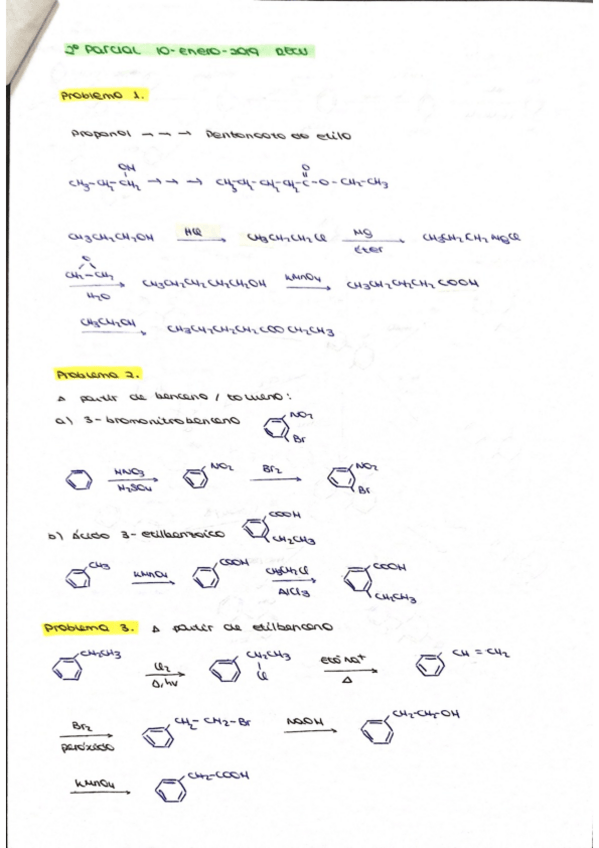 2º Parcial 10-enero-2019
Problema 1.
Propanol → → → Pentanoato de etilo
OH O
CH3-CH2-CH2 → → → CH3-CH2-CH2-CH2-C-O-CH2-CH3
CH3CH2CH2OH HCl CH3CH2CH2Cl Mg Éter CH3CH2CH2MgCl
O CH2-CH2 H2O CH3CH2CH2CH2CH2OH KMnO4 CH3CH2CH2CH2COOH
CH3CH2OH CH3CH2CH2CH2COOCH2CH3
Problema 2.
A partir de benceno / tolueno:
a) 3-bromonitrobenceno NO2 Br
HNO3 H2SO4 NO2 Br2 NO2 Br
b) Ácido 3-etilbenzoico COOH CH2CH3
CH3 KMnO4 COOH CH3CH2Cl AlCl3 COOH CH2CH3
Problema 3. A partir de etilbenceno
CH2CH3 Cl2 Δ, hν CH2CH3 Cl EtO⁻Na⁺ Δ CH=CH2
Br2 peróxido CH2-CH2-Br NaOH CH2-CH2-OH
KMnO4 CH2-COOH